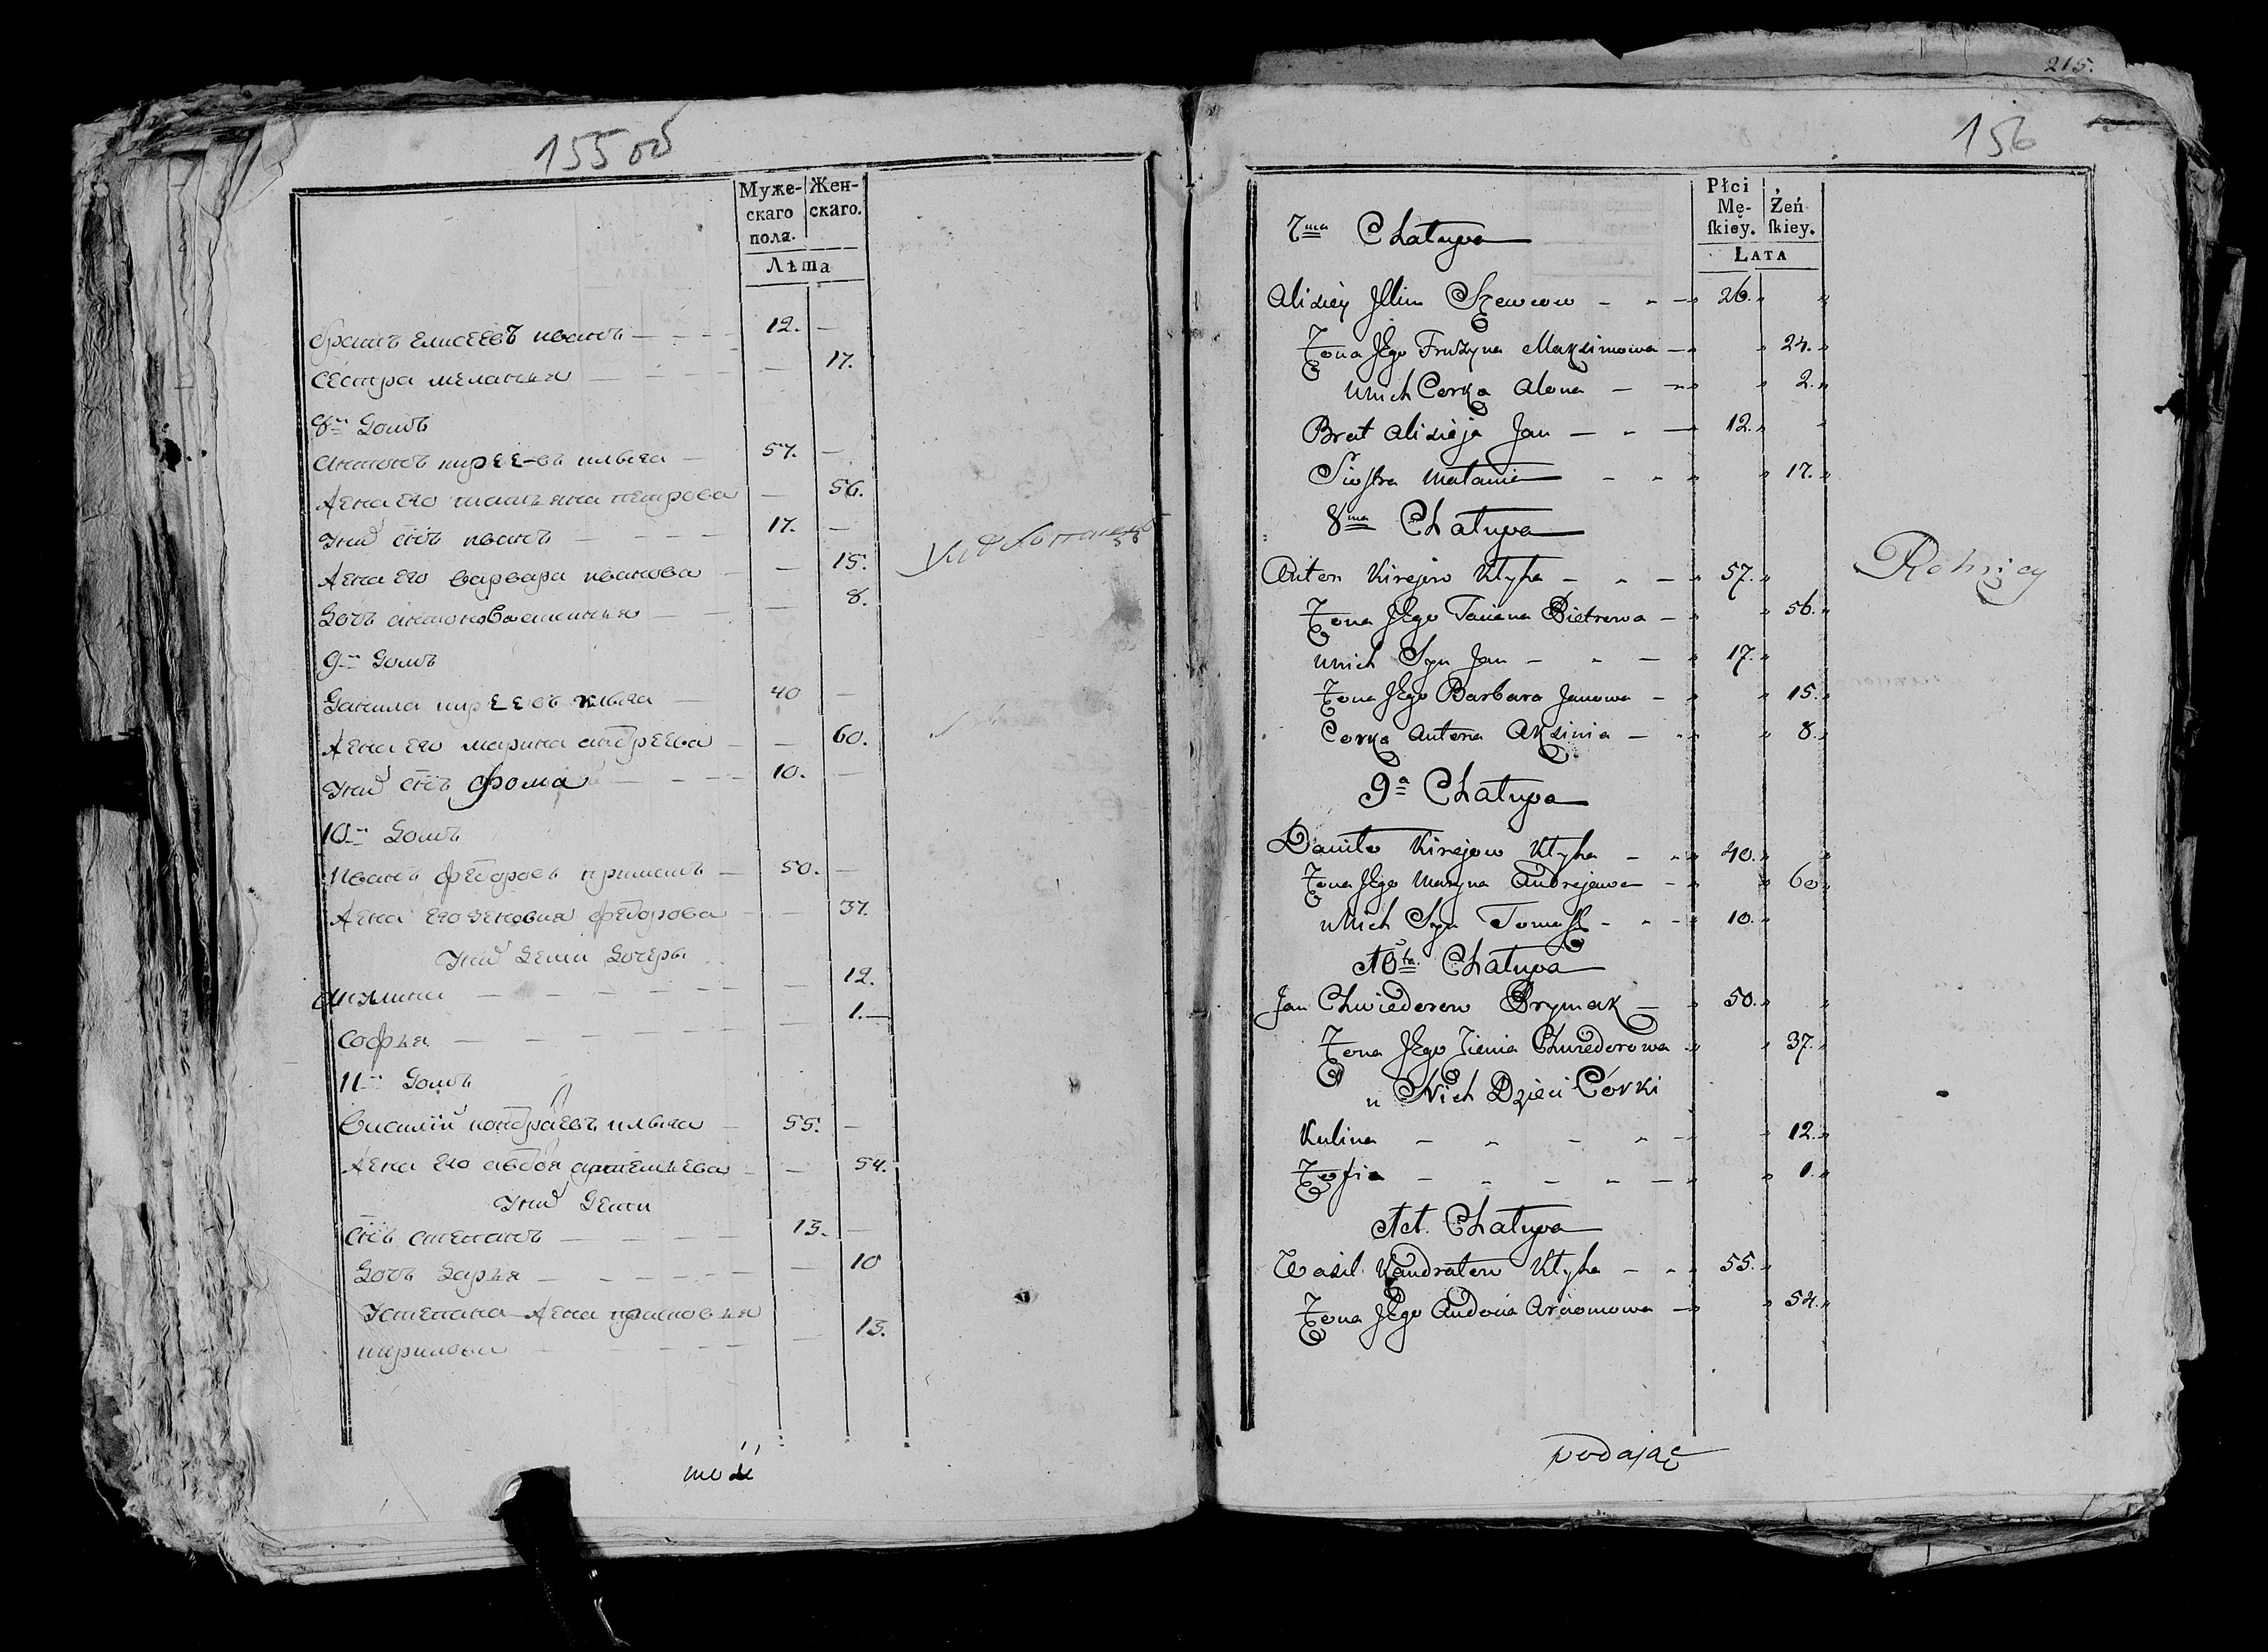 155 об
Муже-
скаго
пола.
Жен-
скаго.
Лѣта
братъ елисеевъ иванъ — — — 12. —
сестра меланья — — — — — 17.
8й домъ
антонъ киреевъ клыга — 57. —
жена его татьяна петрова — 56.
У нихъ снъ иванъ — — — — 17. —
жена его варвара иванова — — 15.
дочь антонова аксинья — — — 8.
9й домъ
данила киреевъ клыга — 40 —
жена его марина андреева — — 60.
У нихъ снъ фома — — — 10. —
10й домъ
иванъ федоровъ примакъ — 50. —
жена его зеновия федорова — — 37.
У нихъ дети дочери
акулина — — — — — — 12.
софья — — — — 1. —
11й домъ
василий кондратьевъ клыга — 55. —
жена его авдотья артемьева — — 54.
У нихъ дети
снъ степанъ — — — — 13. —
дочь дарья — — — — — — 10
У степана жена прасковья
кирилова — — — — — 13.
215.
156
Płci
Mę-
ſkiey.
Żeń
ſkiey.
LATA
7ma Chałupa
Alixiey Jllin Szewcow — — — 26.
Zona JEgo Fruzyna Maksimowa — 24.
u nich Corka Alona — — 2.
Brat Alixieja Jan — — — 12.
Siostra Małania — — 17.
8ma Chałupa
Anton Kirejew Kłyha — — — 57.
Zona JEgo Taciana Pietrowa — 56.
u nich Syn Jan — — — 17.
Zona JEgo Barbara Janowa — 15.
Corka Antona Aksinia — — 8.
9a Chałupa
Daniło Kirejew Kłyha — — 40.
Zona JEgo Maryna Andrejewa — 60
u Nich Syn Tomasz — — — 10.
10ta Chałupa
Jan Chwiederow Prymak — 50.
Zona JEgo Zienia Chwiedorowa — 37.
u Nich Dzieci Córki
Kulina — — — — — 12.
Zofia — — — — — 1.
11. Chałupa
Wasil Kandratew Kłyha — — 55.
Zona JEgo Audocia Arciomowa — 54.
podając